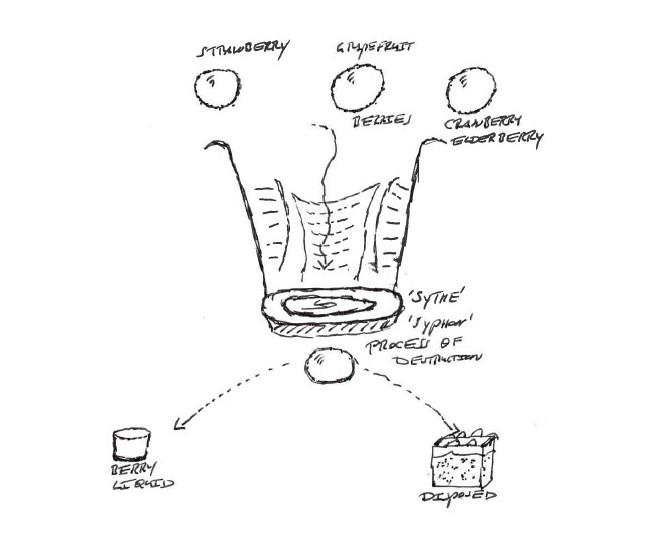 STRAWBERRY
GRAPEFRUIT
BERRIES
CRANBERRY
ELDERBERRY
'SYTHE'
'SYPHON'
PROCESS OF
DESTRUCTION
BERRY
LIQUID
DISPOSED